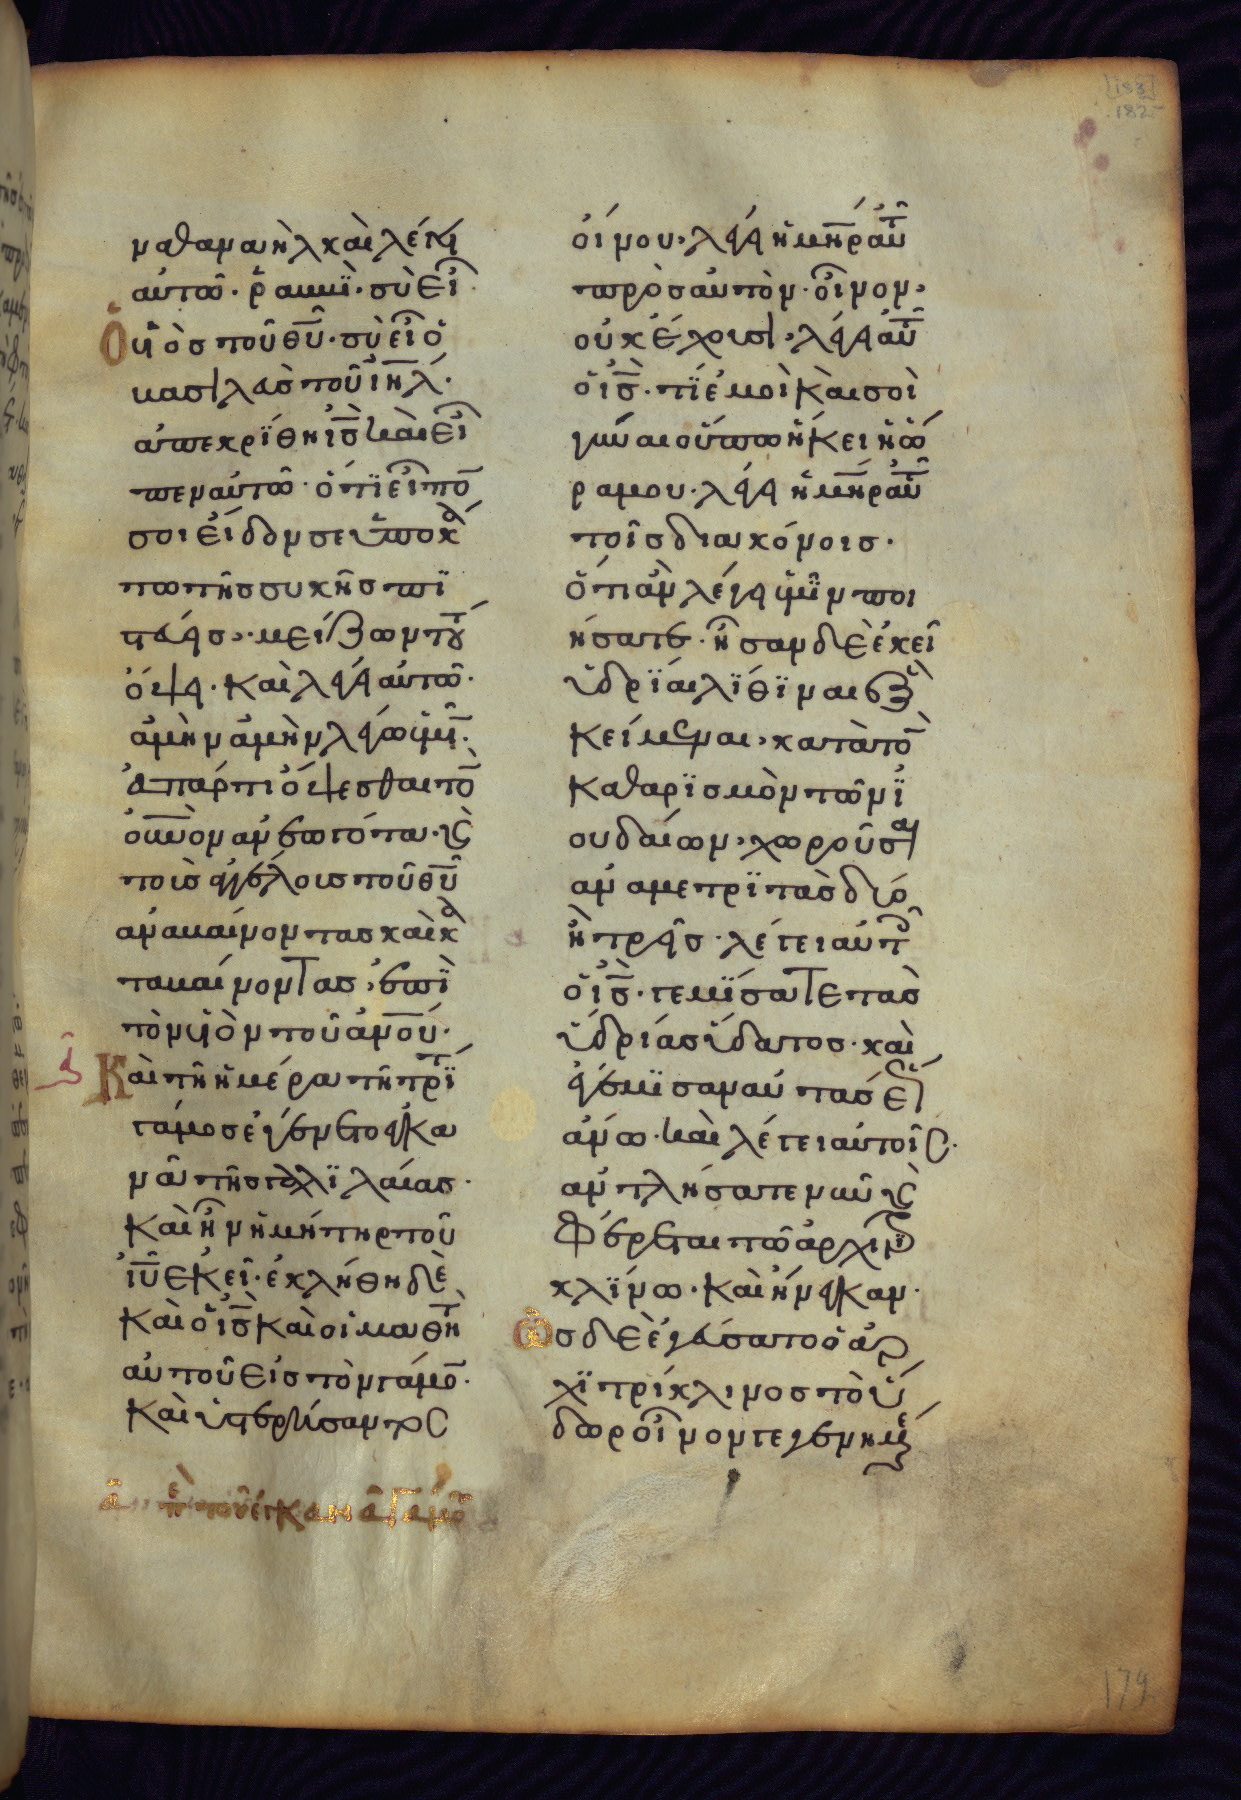 [183]
182
ναθαναὴλ καὶ λέγει
αὐτῶ· ῥαββϊ· σὺ εἶ
ὁ υἱὸς τοῦ θ̅υ̅· σὺ εἶ ὁ
βασιλεὺς τοῦ ἰη̅λ̅·
ἀπεκρίθη ἰ̅ς̅ καὶ εἶ
πεν αὐτῶ· ὅτι εἶπο̅
σοι εἶδόν σε ὑποκά
τω τῆς συκῆς πι
στεύεις· μείζων τού
όψει· καὶ λέγει αὐτῶ·
ἀμὴν ἀμὴν λέγω ὑμῖ̅·
ἀπάρτι ὄψεσθαι τὸ̅
ο̅υ̅ν̅ο̅ν ἀνεωγότα· κ̀
τοὺς ἀγγέλους τοῦ θ̅υ̅
ἀναβαίνοντας καὶ κα
ταβαίνοντας, ἐπὶ
τὸν υἱὸν τοῦ ἀ̅ν̅ο̅υ̅·
Καὶ τῆ ἡμέρα τῆ τρί
γάμος ἐγένετο ἐν κα
νᾶ τῆς γαλιλαίας·
καὶ ἦν ἡ μήτηρ τοῦ
ἰ̅υ̅ ἐκεῖ· ἐκλήθη δὲ
καὶ ὁ ἰ̅ς̅ καὶ οἱ μαθητ
αὐτοῦ εἰς τὸν γάμο̅·
καὶ ὑστερήσαντος
τοῦ ἐν κανᾶ γάμου
οἴνου, λέγει ἡ μ̅η̅ρ̅ αὐτ
πρὸς αὐτὸν· οἶνον,
οὐκ ἔχουσι, λέγει αὐτ
ὁ ἰ̅ς̅· τί ἐμοὶ καὶ σοὶ
γύναι οὔπω ἥκει ἡ ὥ
ρα μου· λέγει ἡ μ̅η̅ρ̅ αὐτ
τοῖς διακόνοις·
ὅτι ἂν λέγει ὑμῖν ποι
ήσατε· ἦσαν δὲ ἐκεῖ
ὑδρίαι λίθιναι ἓξ
κείμεναι, κατὰ τὸ̅
καθαρισμὸν τῶν ϊ
ουδαίων, χωροῦσαι
ἀνὰ μετριτὰς δύο
ἢ τρεῖς· λέγει αὐτ
ὁ ἰ̅ς̅· γεμίσατε τὰς
ὑδρίας ὕδατος· καὶ
ἐγέμισαν αὐτὰς ἕως
ἄνω· καὶ λέγει αὐτοῖς·
ἀντλήσατε νῦν κ̀
φέρεται τῶ ἀρχιτρι
κλίνω· καὶ ἤνεγκαν·
ὡς δὲ ἐγεύσατο ὁ ἀρ
χιτρίκλινος τὸ ὕ
δωρ οἶνον γεγενημέ
179